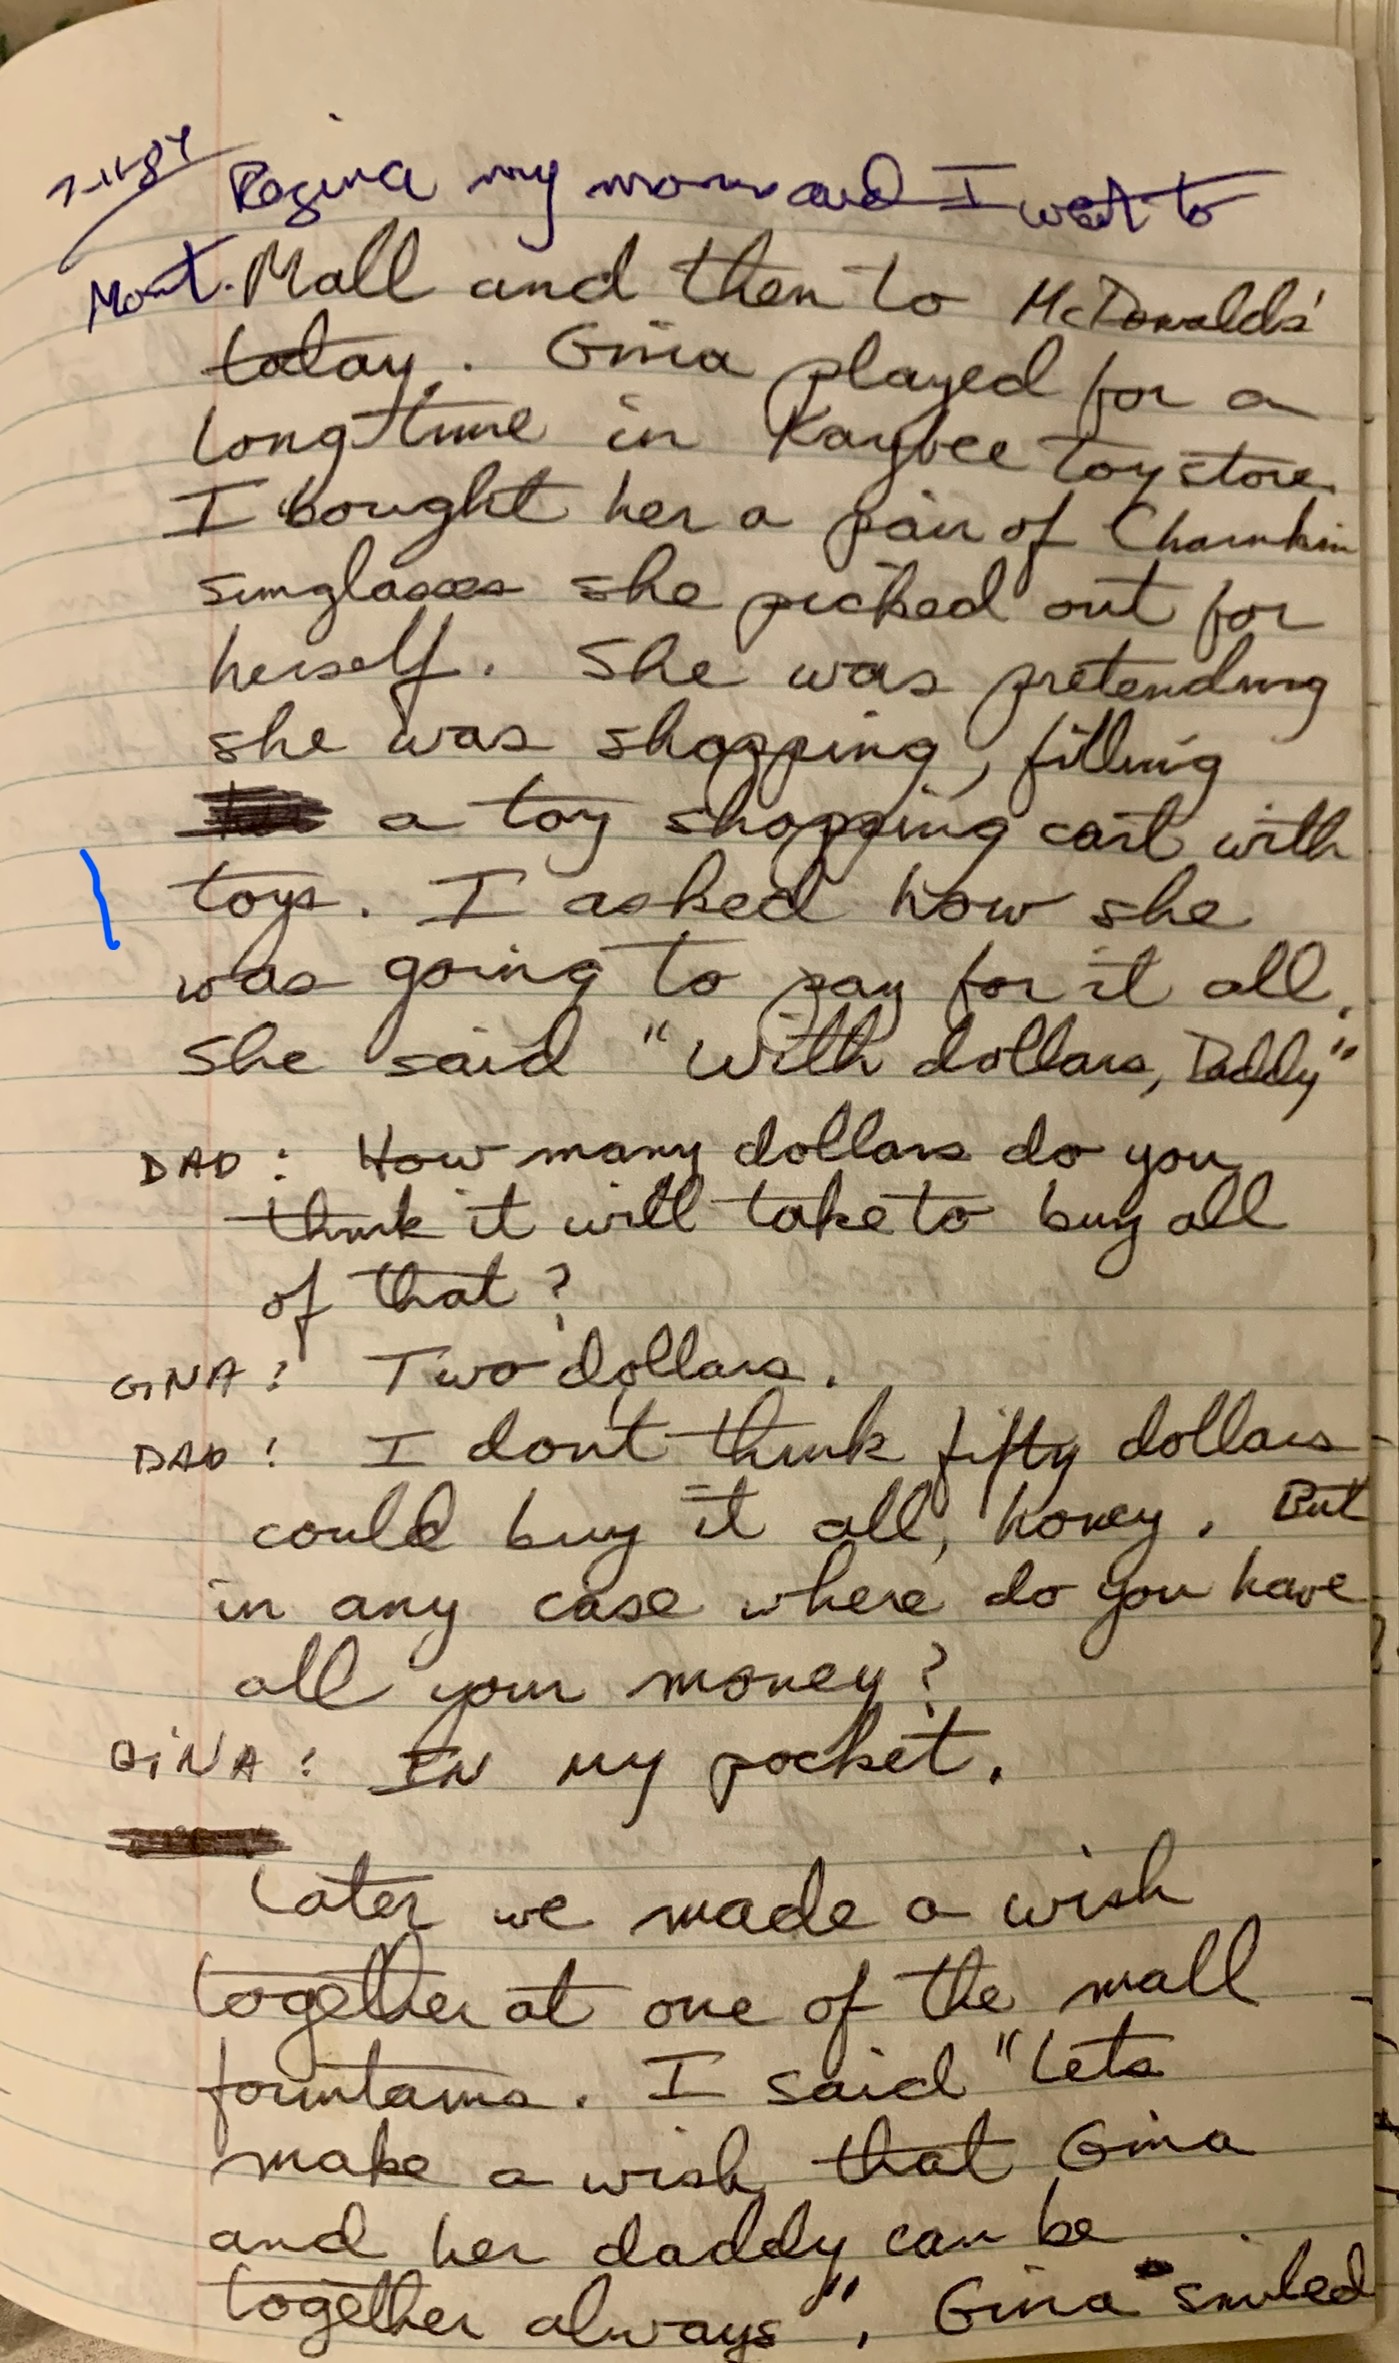 7-11-84 Regina my mom and I went to
Mont. Mall and then to McDonalds'
today. Gina played for a
long time in Kaybee toy store.
I bought her a pair of Charmkin
sunglasses she picked out for
herself. She was pretending
she was shopping, filling
a toy shopping cart with
toys. I asked how she
was going to pay for it all.
She said "With dollars, Daddy"
DAD: How many dollars do you
think it will take to buy all
of that?
GINA: Two dollars.
DAD: I dont think fifty dollars
could buy it all, honey. But
in any case where do you have
all your money?
GiNA: IN my pocket.
Later we made a wish
together at one of the mall
fountains. I said "Lets
make a wish that Gina
and her daddy can be
together always". Gina smiled